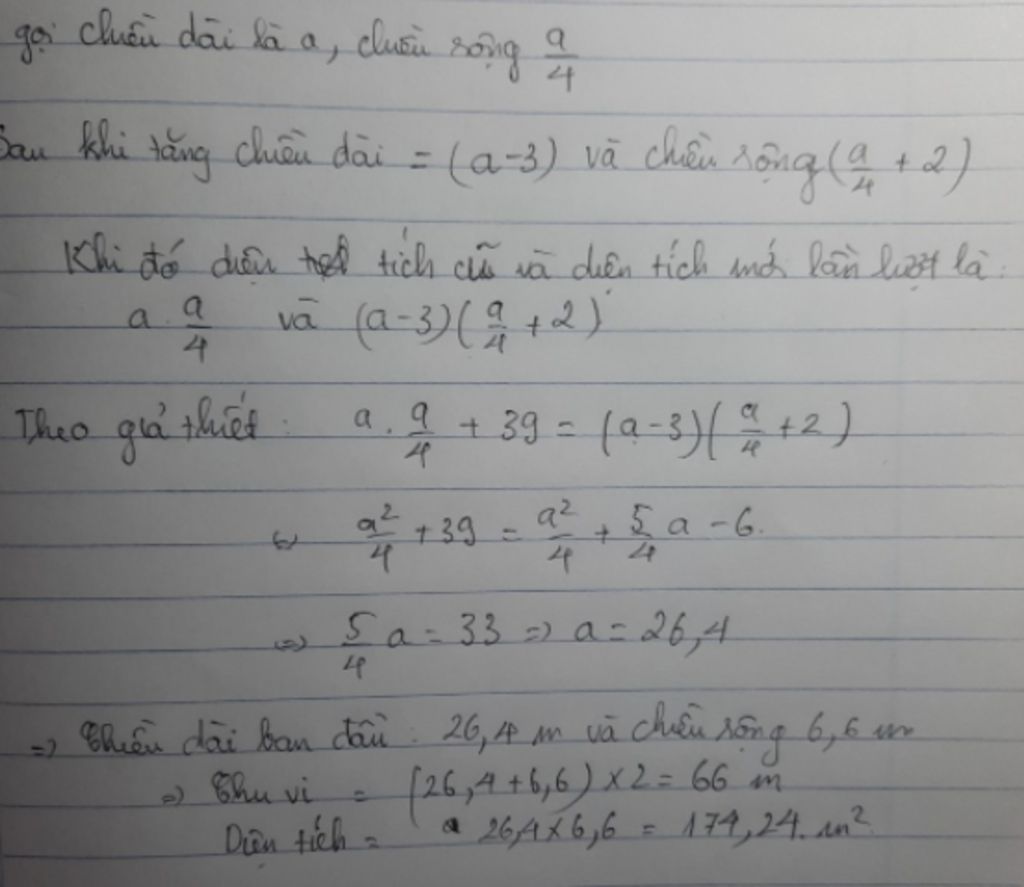 gọi chiều dài là a, chiều rộng a/4
Sau khi tăng chiều dài = (a-3) và chiều rộng (a/4 + 2)
Khi đó diện tích cũ và diện tích mới lần lượt là:
a . a/4 và (a-3)(a/4 + 2)
Theo giả thiết: a . a/4 + 39 = (a-3)(a/4 + 2)
⇔ a²/4 + 39 = a²/4 + 5/4 a - 6.
⇒ 5/4 a = 33 ⇒ a = 26,4
⇒ Chiều dài ban đầu: 26,4 m và chiều rộng 6,6 m
⇒ Chu vi = (26,4 + 6,6) × 2 = 66 m
Diện tích = 26,4 × 6,6 = 174,24. m²